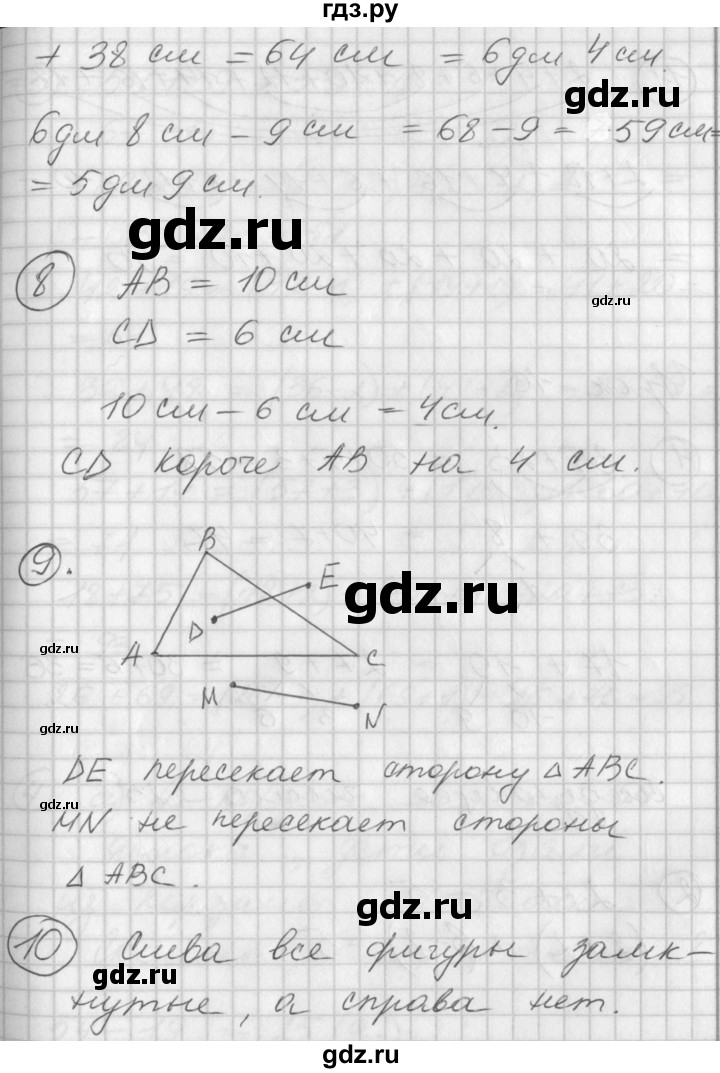 гдз.ру
+ 38 см = 64 см = 6дм 4 см.
gdz.ru
6дм 8 см - 9 см = 68 - 9 = 59 см =
= 5 дм 9 см.
gdz.ru
8 AB = 10 см
gdz.ru
CD = 6 см
10 см - 6 см = 4 см.
CD короче AB на 4 см.
9.
B
E
gdz.ru
D
gdz.ru
A
C
M
N
gdz.ru
DE пересекает сторону △ ABC.
gdz.ru
MN не пересекает стороны
△ ABC.
gdz.ru
10 Слева все фигуры замк-
gdz.ru
нутые, а справа нет.
gdz.ru